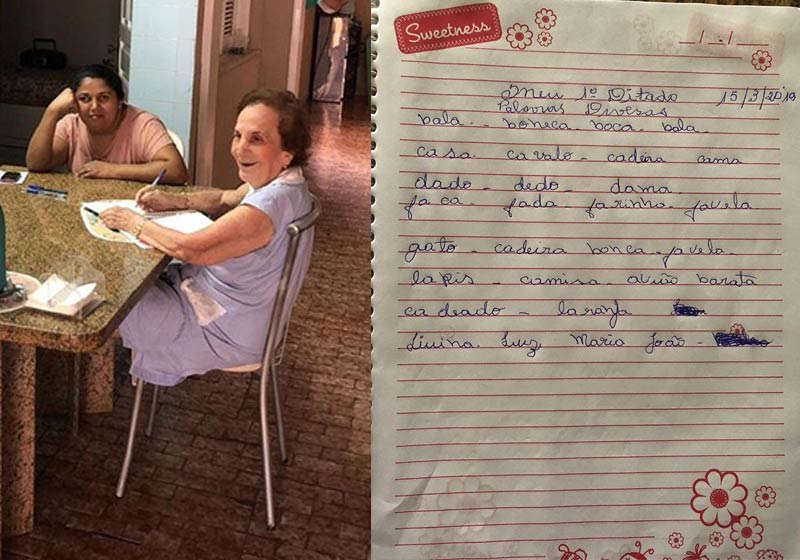 Sweetness
_/_._/_
Meu 1º Ditado 15/3/2019
Palavras Diversas
bala - boneca - boca - bola -
casa cavalo - cadeira cama
dado - dedo - dama
faca - fada - farinha - favela
gato - cadeira boneca - favela -
lapis - camisa - avião barata
cadeado - laranja
Livina Luz Maria João -